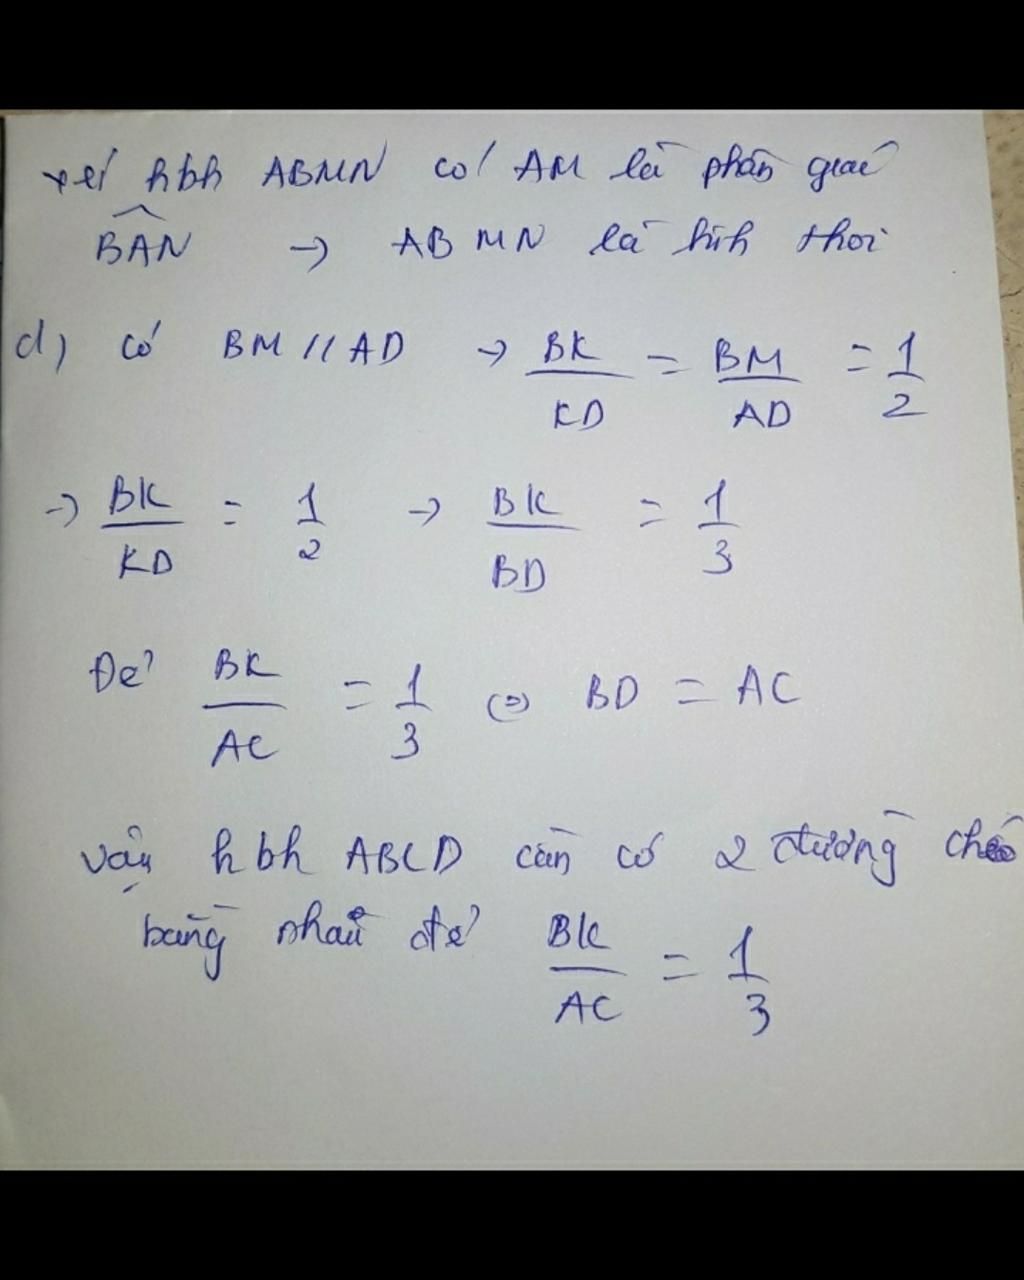 xét hbh ABMN có AM là phân giác
BAN → ABMN là hình thoi
d) có BM // AD → BK/KD = BM/AD = 1/2
→ BK/KD = 1/2 → BK/BD = 1/3
Để BK/AC = 1/3 ⇔ BD = AC
vậy hbh ABCD cần có 2 đường chéo
bằng nhau để BK/AC = 1/3